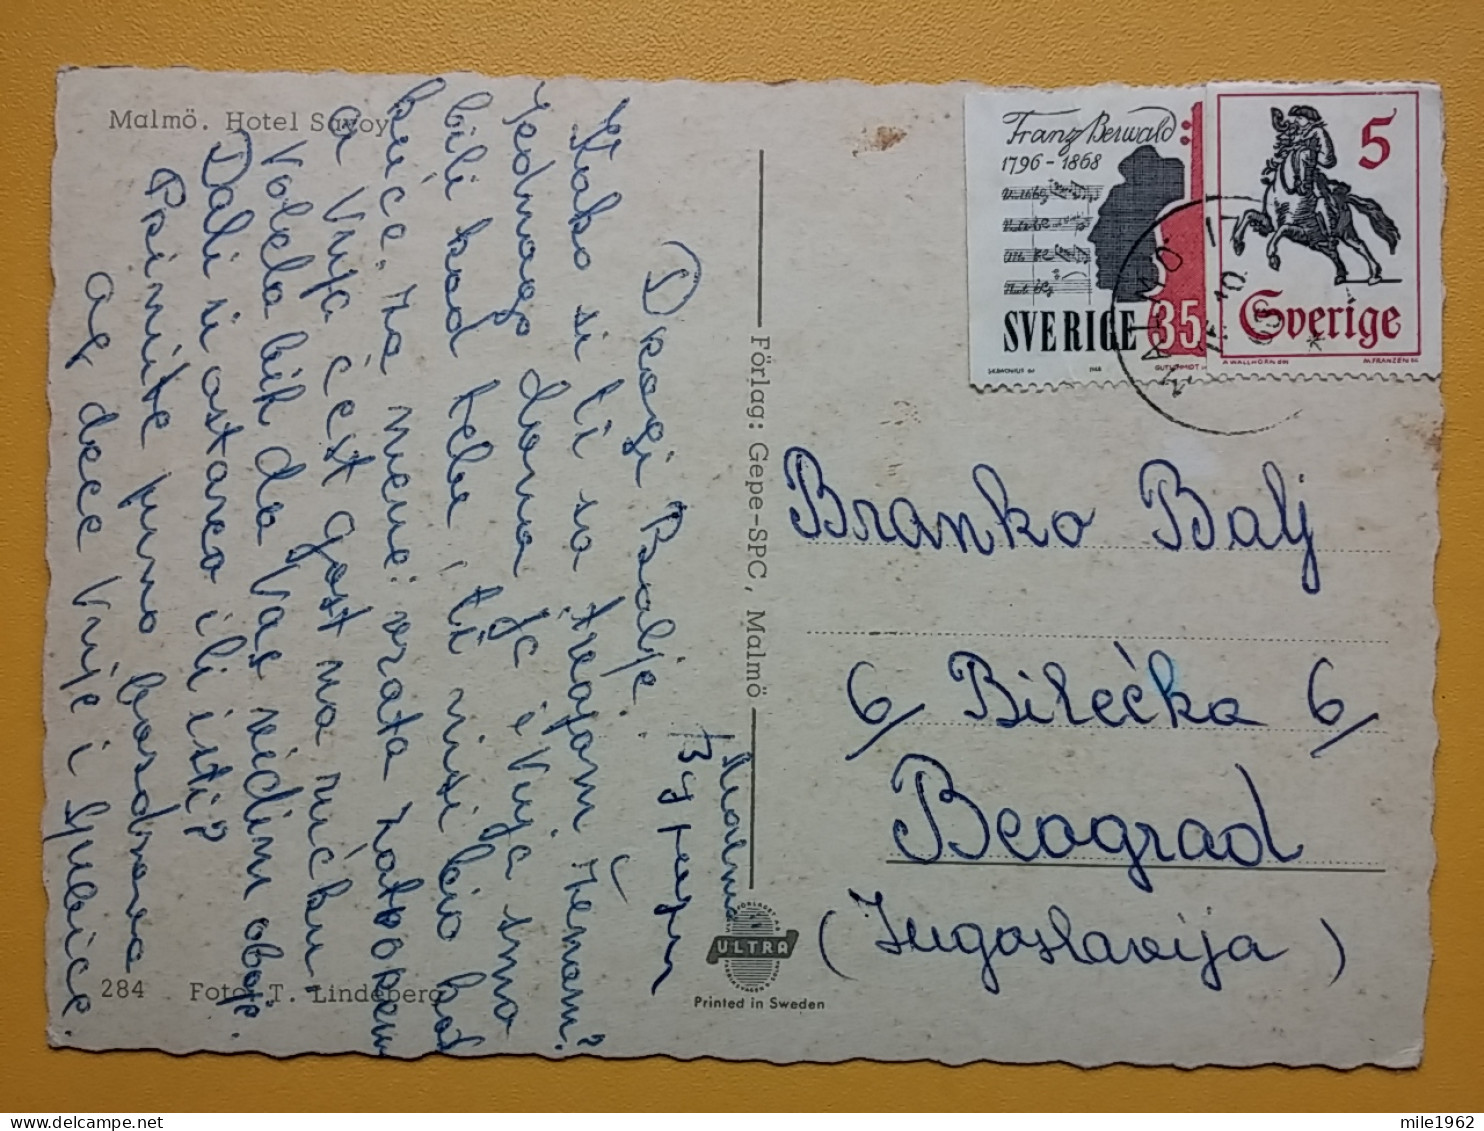 Malmö. Hotel Savoy
Malmö
Dragi Balje
Kako si ti sa trećom ženom?
Jednoga dana ja i Vrja smo
bili kod tebe, ti nisi bio kod
kuće. Za mene: vrata zatvorena
a Vrja čest gost na ručku
Volela bih da Vas vidim oboje.
Dali si ostareo ili isti?
Primite puno pozdrava
od dece Vrje i Ljubice.
284
Foto: T. Lindeberg
Förlag: Gepe-SPC, Malmö
ULTRA
Printed in Sweden
Franz Berwald
1796 - 1868
SVERIGE 35
1968
5
Sverige
A WALLHORN SC
M. FRANZEN SC
MALMÖ 1
Branko Balj
6/ Bilećka 6/
Beograd
(Jugoslavija)
mile1962